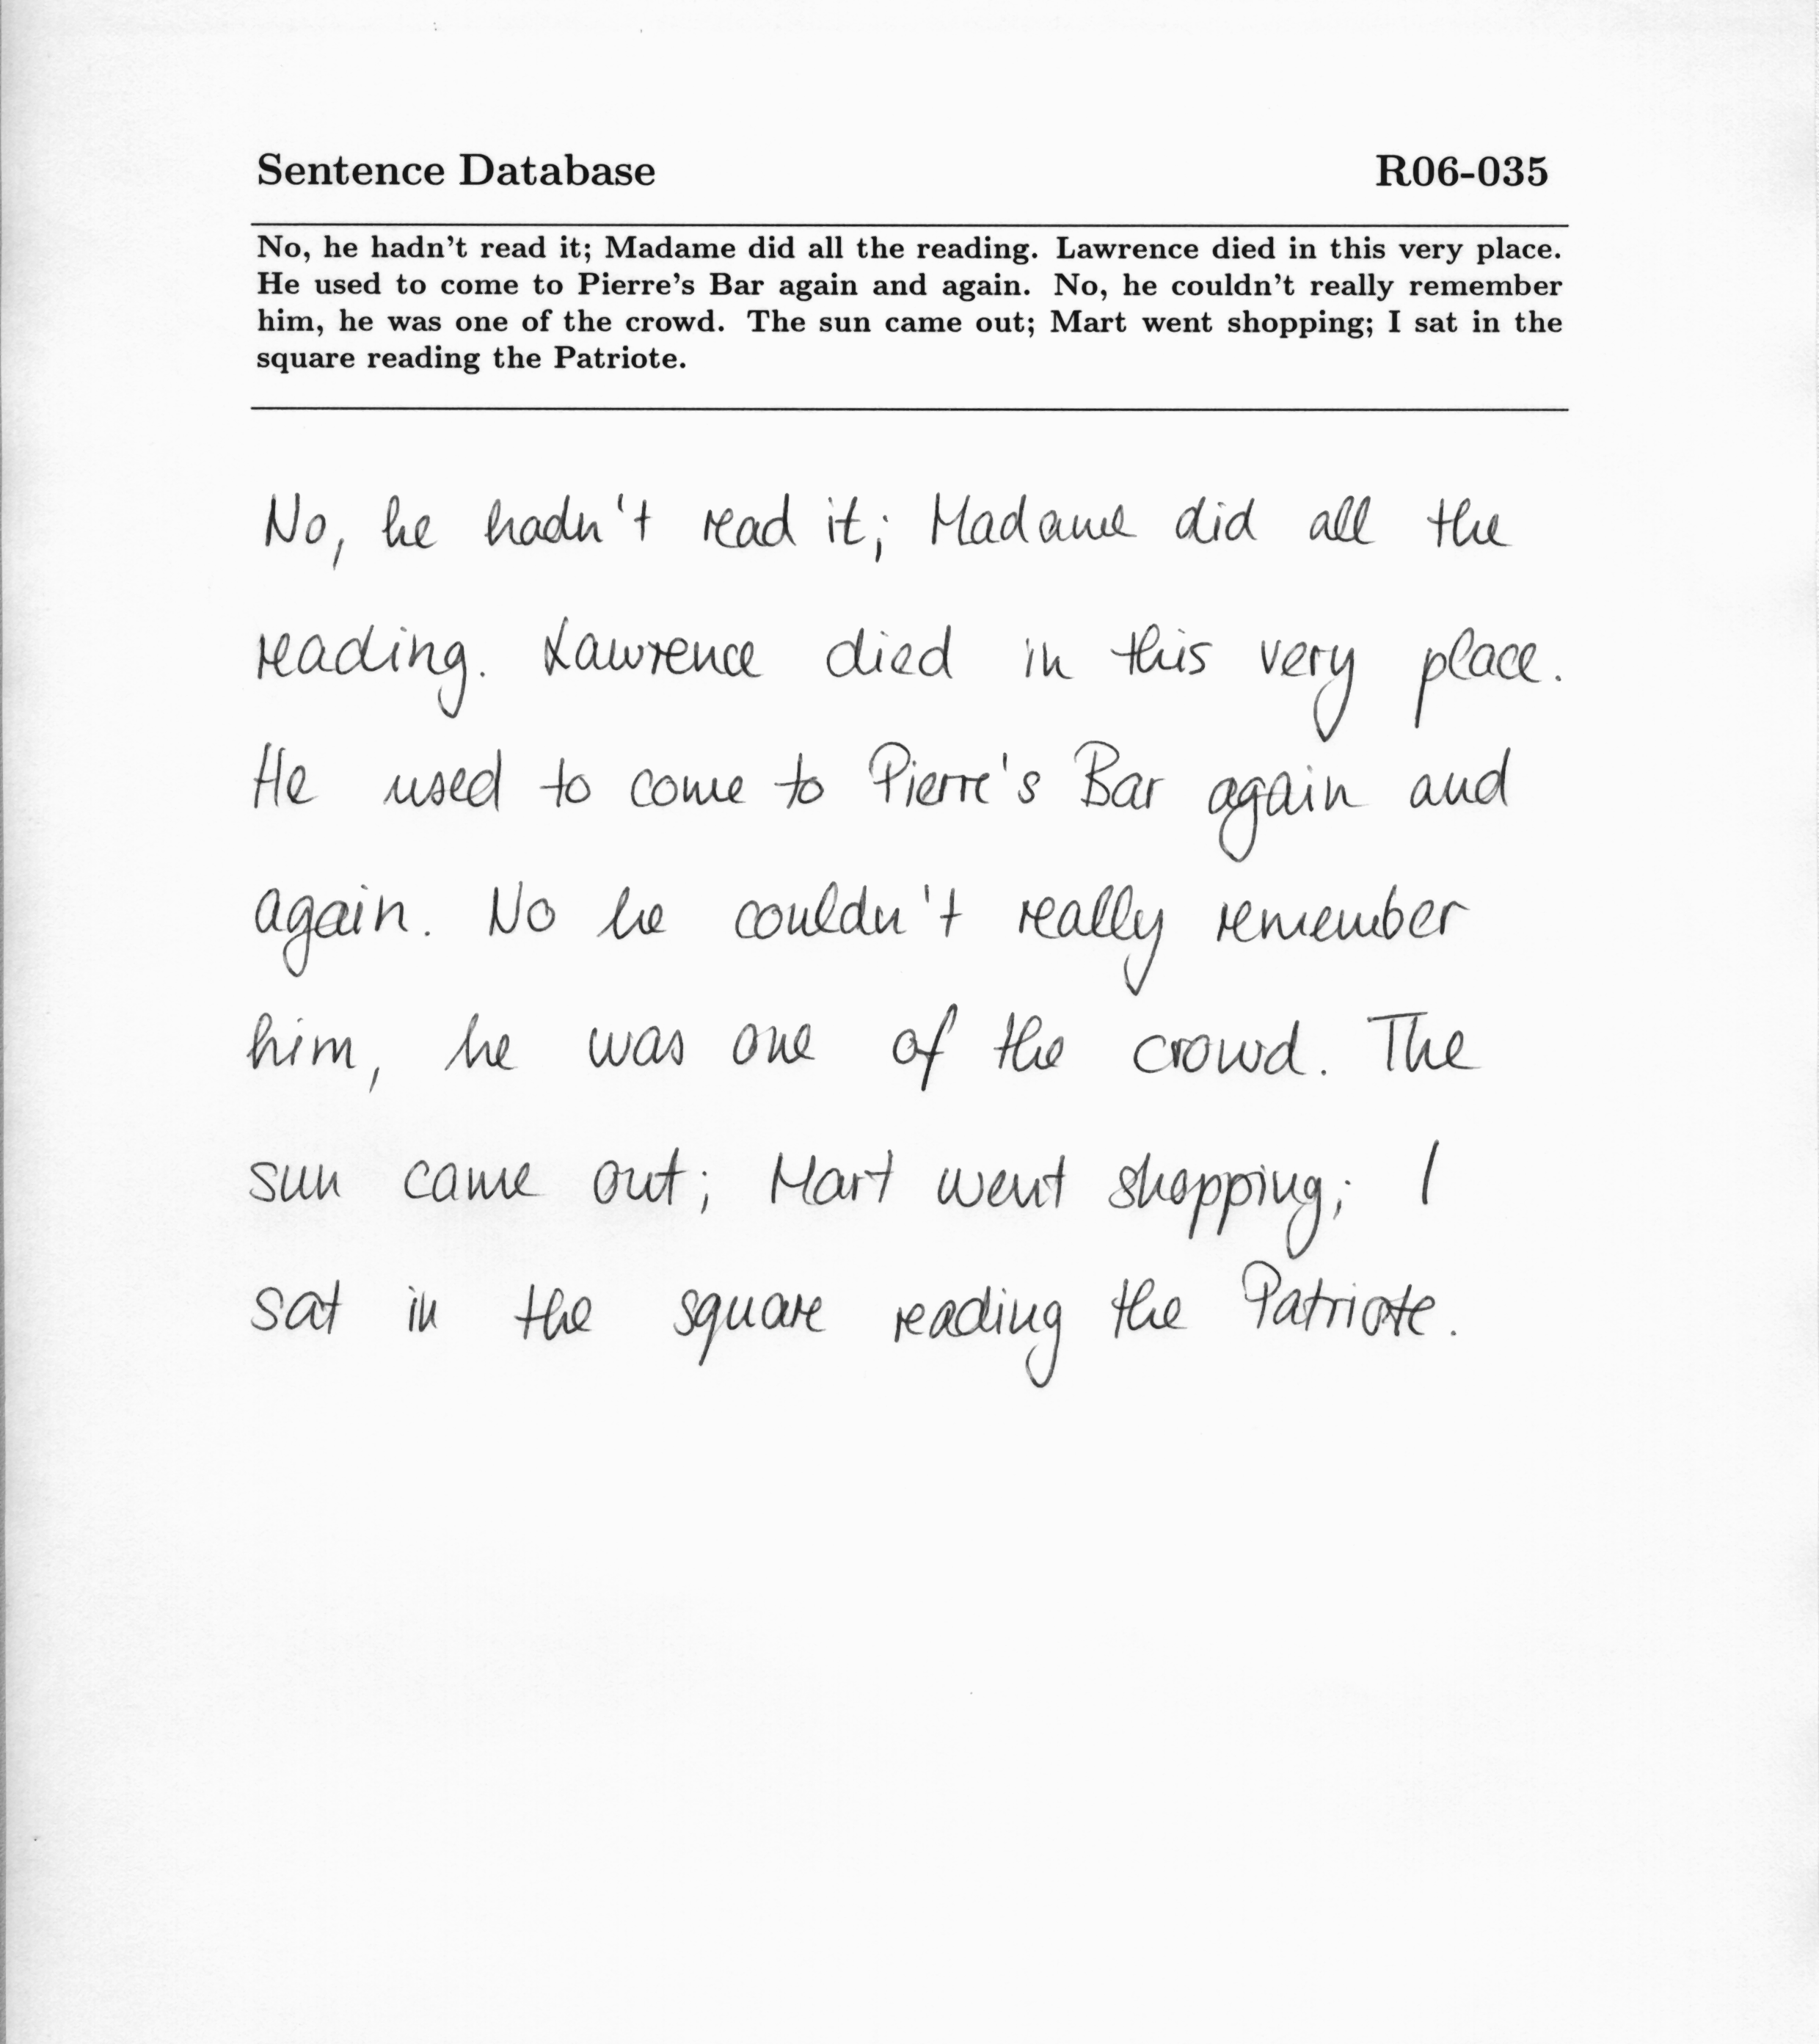 Sentence Database R06-035
No, he hadn't read it; Madame did all the reading. Lawrence died in this very place.
He used to come to Pierre's Bar again and again. No, he couldn't really remember
him, he was one of the crowd. The sun came out; Mart went shopping; I sat in the
square reading the Patriote.
No, he hadn't read it; Madame did all the
reading. Lawrence died in this very place.
He used to come to Pierre's Bar again and
again. No he couldn't really remember
him, he was one of the crowd. The
sun came out; Mart went shopping; I
sat in the square reading the Patriote.